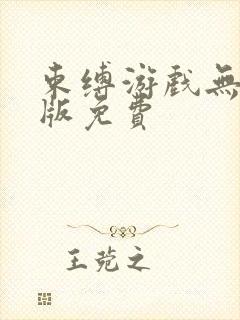 束缚游戏無
版免費
王菀之